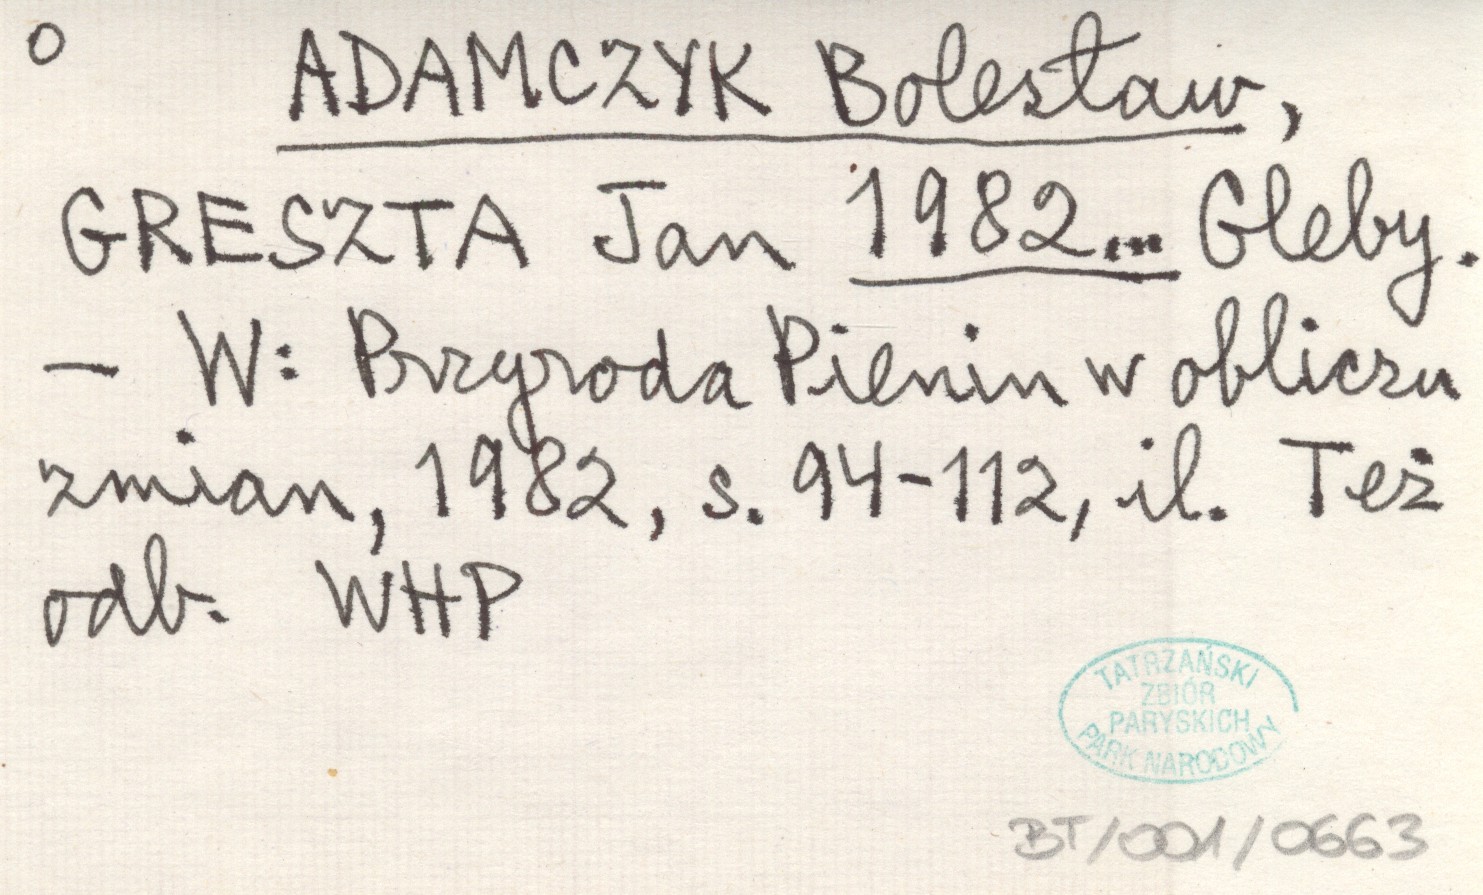 o ADAMCZYK Bolesław,
GRESZTA Jan 1982... Gleby.
– W: Przyroda Pienin w obliczu
zmian, 1982, s. 94-112, il. Też
odb. WHP
TATRZAŃSKI
ZBIÓR
PARYSKICH
PARK NARODOWY
BT/001/0663